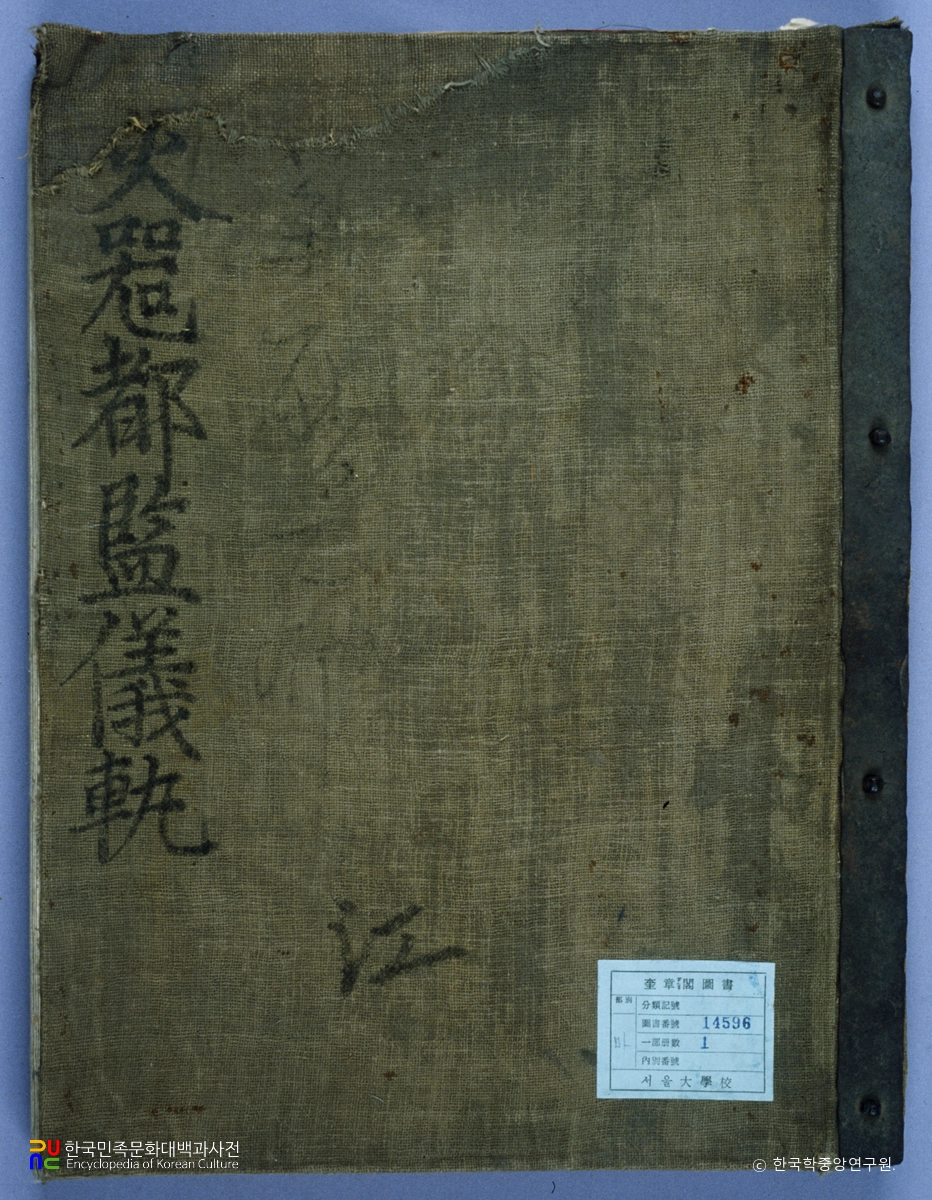 火器都監儀軌
江
奎章閣圖書
分類記號
圖書番號 14596
一部册數 1
內別番號
서울大學校
한국민족문화대백과사전
Encyclopedia of Korean Culture
© 한국학중앙연구원.